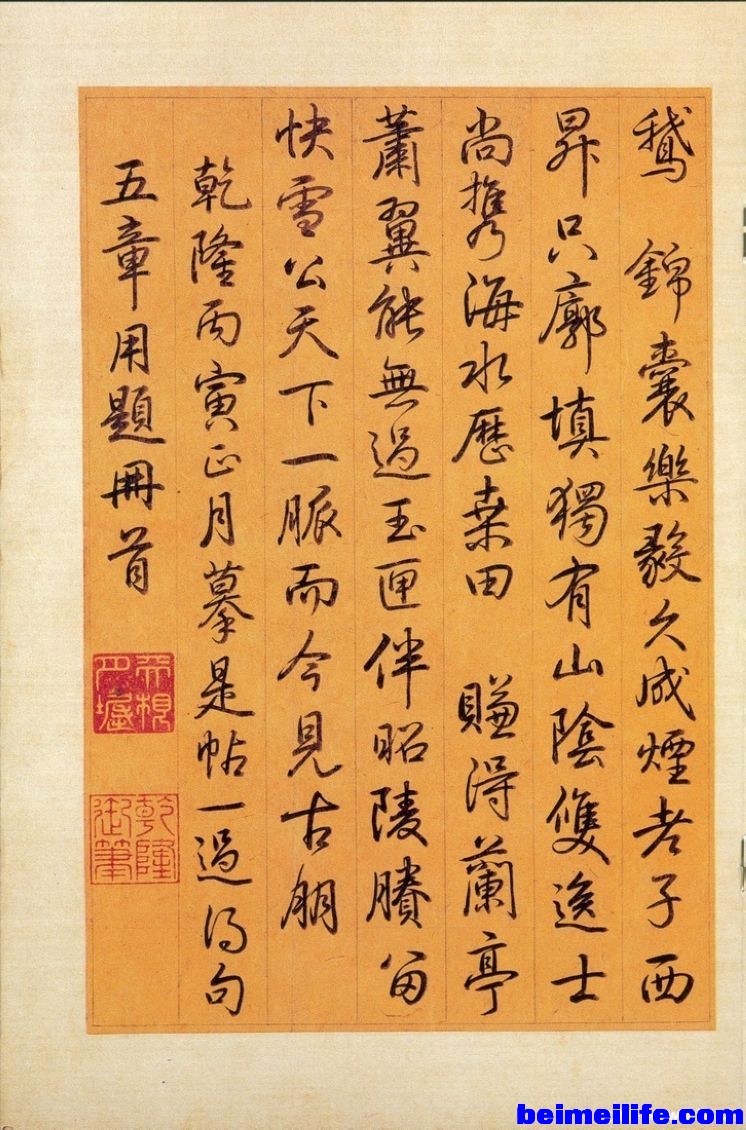 鵝 錦囊樂毅久成煙老子西
昇只廓填獨有山陰雙逸士
尚携海水歷桑田 賺得蘭亭
蕭翼能無過玉匣伴昭陵賸留
快雪公天下一脈而今見古朋
乾隆丙寅正月摹是帖一過得句
五章用題冊首
乾隆
御筆
beimeilife.com